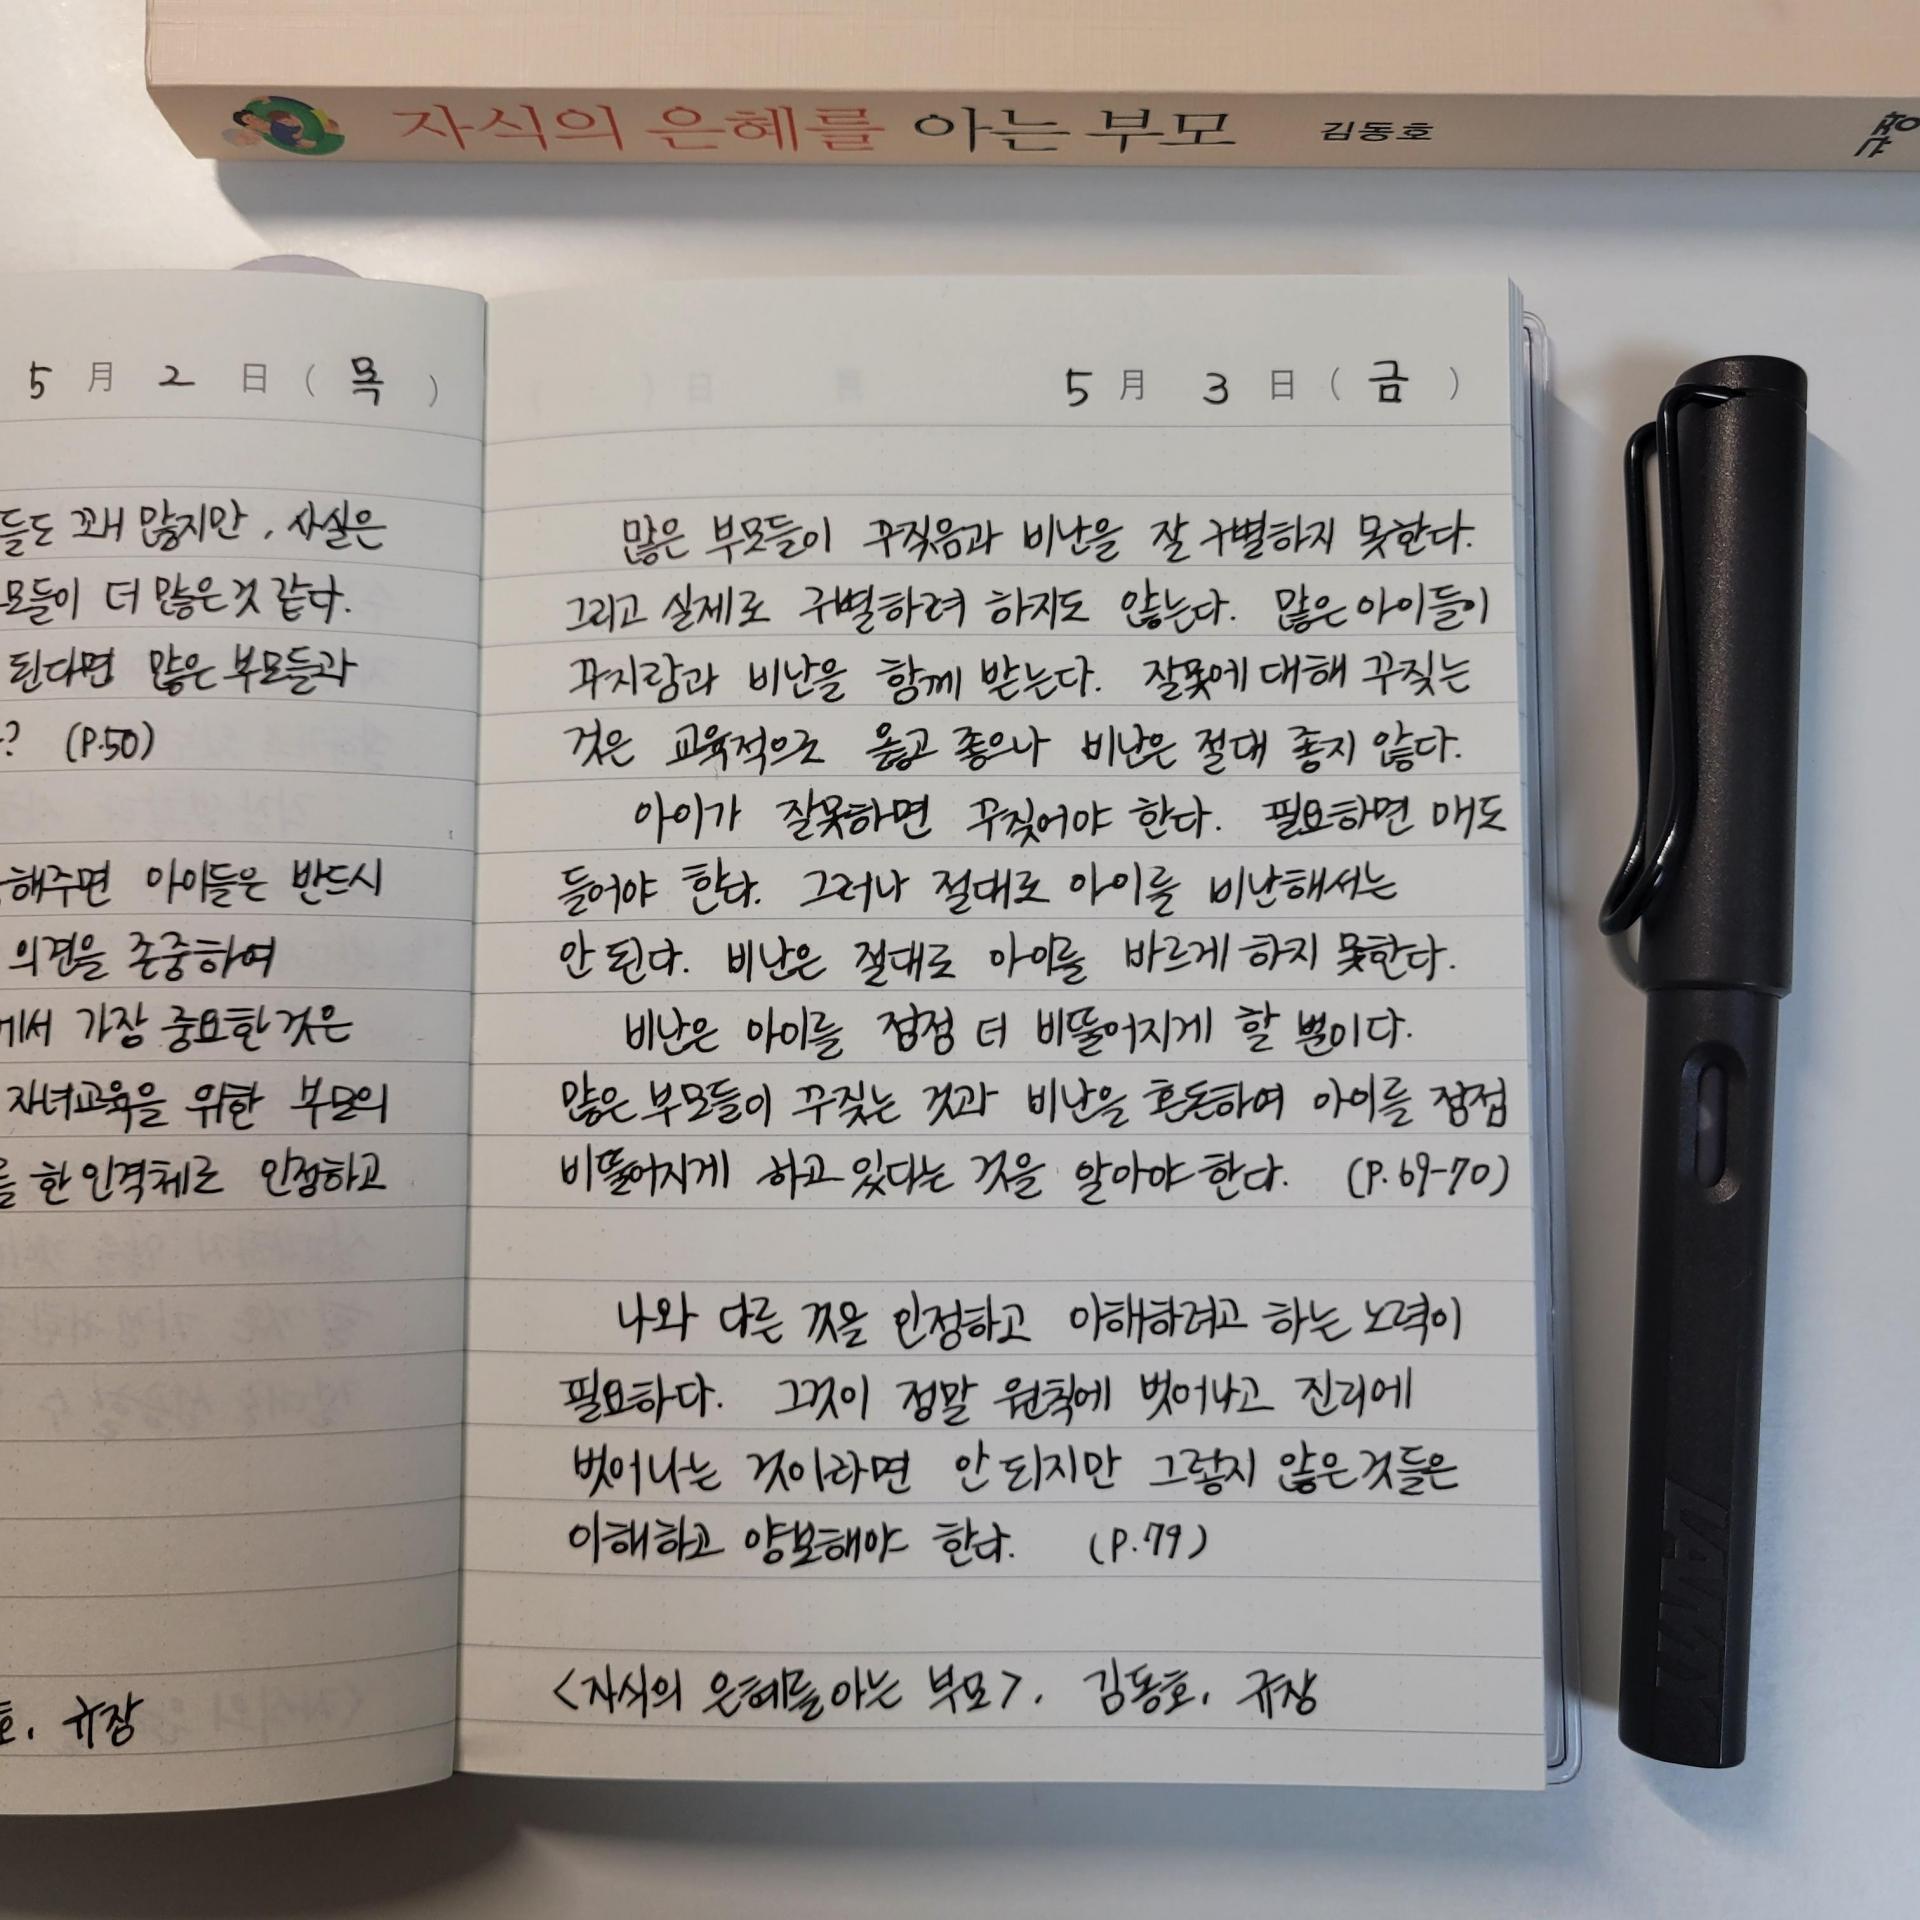 자식의 은혜를 아는 부모 김동호 규장
5月 2日(목)
들도 꽤 많지만, 사실은
모들이 더 많은 것 같다.
된다면 많은 부모들과
? (P.50)
해주면 아이들은 반드시
의견을 존중하여
에서 가장 중요한 것은
자녀교육을 위한 부모의
를 한 인격체로 인정하고
호, 규장
5月 3日(금)
많은 부모들이 꾸짖음과 비난을 잘 구별하지 못한다.
그리고 실제로 구별하려 하지도 않는다. 많은 아이들이
꾸지람과 비난을 함께 받는다. 잘못에 대해 꾸짖는
것은 교육적으로 옳고 좋으나 비난은 절대 좋지 않다.
아이가 잘못하면 꾸짖어야 한다. 필요하면 매도
들어야 한다. 그러나 절대로 아이를 비난해서는
안 된다. 비난은 절대로 아이를 바르게 하지 못한다.
비난은 아이를 점점 더 비뚤어지게 할 뿐이다.
많은 부모들이 꾸짖는 것과 비난을 혼돈하여 아이를 점점
비뚤어지게 하고 있다는 것을 알아야 한다. (P.69-70)
나와 다른 것을 인정하고 이해하려고 하는 노력이
필요하다. 그것이 정말 원칙에 벗어나고 진리에
벗어나는 것이라면 안 되지만 그렇지 않은 것들은
이해하고 양보해야 한다. (P.79)
<자식의 은혜를 아는 부모>, 김동호, 규장
LAMY